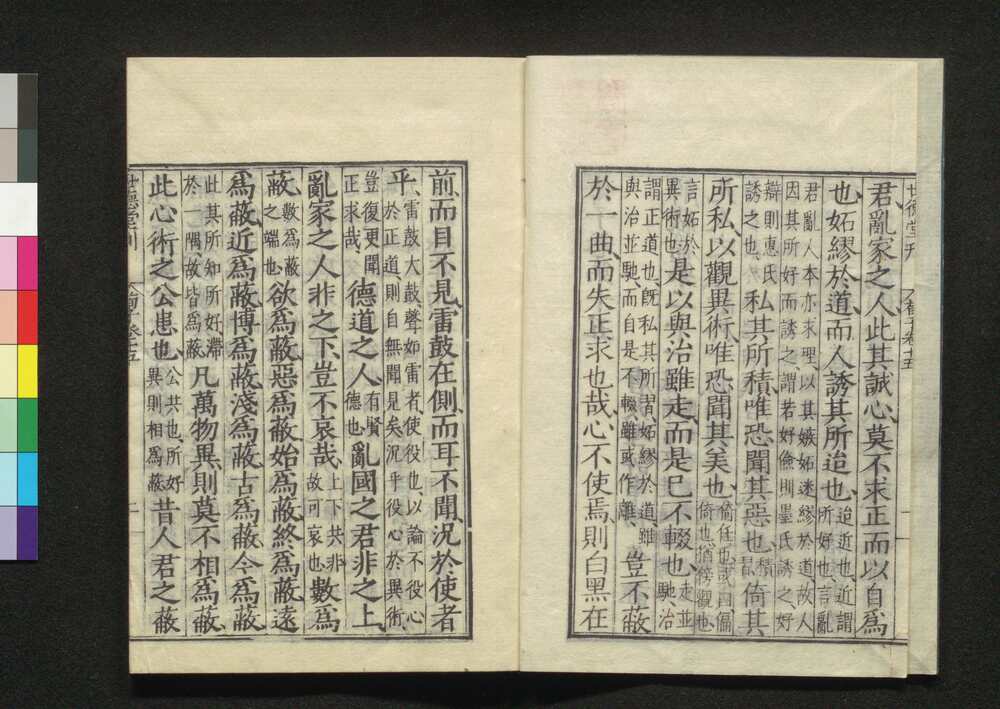 世德堂刊 荀子卷十五 一
君亂家之人此其誠心莫不求正而以自爲
也妬繆於道而人誘其所迨也迨近也近謂所好也言亂
君亂人本亦求理以其嫉妬迷繆於道故人因其所好而誘之謂若好儉則墨氏誘之好
辯則惠氏誘之也私其所積唯恐聞其惡也積習倚其
所私以觀異術唯恐聞其美也倚任也或曰偏倚也猶傍觀也
言妬於異術也是以與治雖走而是已不輟也走並馳治
謂正道也既私其所習妬繆於道雖與治並馳而自是不輟雖或作離豈不蔽
於一曲而失正求也哉心不使焉則白黑在
前而目不見雷鼓在側而耳不聞況於使者
乎雷鼓大鼓聲如雷者使役也以論不役心於正道則自無聞見矣況乎役心於異術
豈復更聞正求哉德道之人有賢德也亂國之君非之上
亂家之人非之下豈不哀哉上下共非故可哀也數爲
蔽數爲蔽之端也欲爲蔽惡爲蔽始爲蔽終爲蔽遠
爲蔽近爲蔽博爲蔽淺爲蔽古爲蔽今爲蔽
此其所知所好滯於一隅故皆爲蔽凡萬物異則莫不相爲蔽
此心術之公患也公共也所好異則相爲蔽昔人君之蔽
世德堂刊 荀子卷十五 一